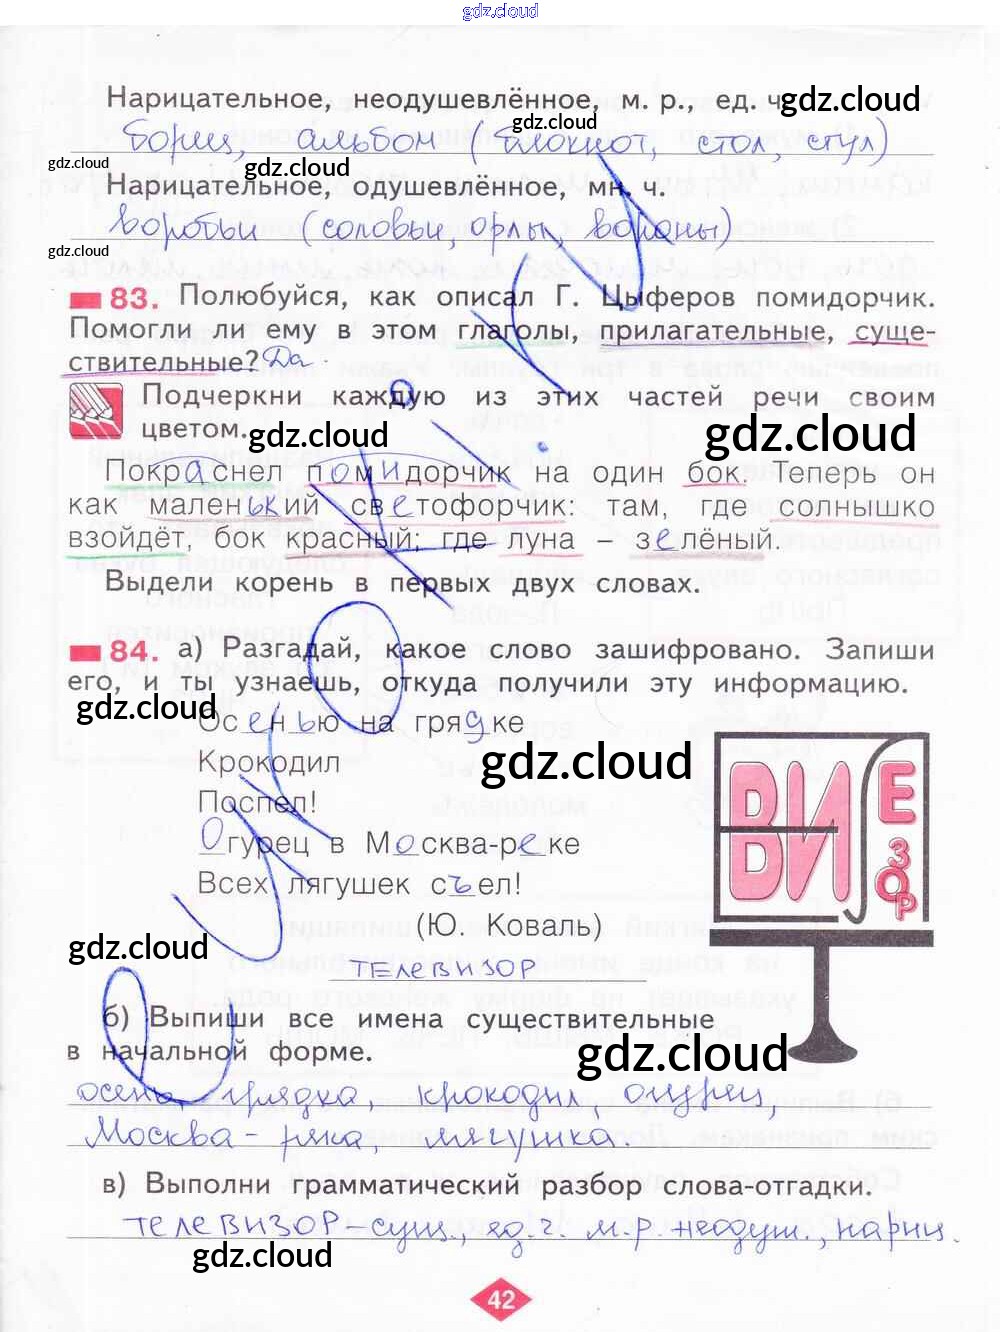 gdz.cloud
Нарицательное, неодушевлённое, м. р., ед. ч.
gdz.cloud
gdz.cloud
борщ, альбом (блокнот, стол, стул)
gdz.cloud
gdz.cloud
Нарицательное, одушевлённое, мн. ч.
воробьи (соловьи, орлы, вороны)
gdz.cloud
83. Полюбуйся, как описал Г. Цыферов помидорчик.
Помогли ли ему в этом глаголы, прилагательные, суще-
ствительные? Да.
Подчеркни каждую из этих частей речи своим
цветом.
gdz.cloud
gdz.cloud
Покраснел помидорчик на один бок. Теперь он
как маленький светофорчик: там, где солнышко
взойдёт, бок красный; где луна – зелёный.
Выдели корень в первых двух словах.
84. а) Разгадай, какое слово зашифровано. Запиши
его, и ты узнаешь, откуда получили эту информацию.
gdz.cloud
Осенью на грядке
Крокодил
gdz.cloud
Поспел!
Огурец в Москва-реке
Всех лягушек съел!
(Ю. Коваль)
ВИ ВИ Е ЗОР
gdz.cloud
ТЕЛЕВИЗОР
б) Выпиши все имена существительные
в начальной форме.
gdz.cloud
осень, грядка, крокодил, огурец,
Москва-река, лягушка.
в) Выполни грамматический разбор слова-отгадки.
ТЕЛЕВИЗОР – сущ., ед. ч. м.р. неодуш., нариц.
gdz.cloud
gdz.cloud
42